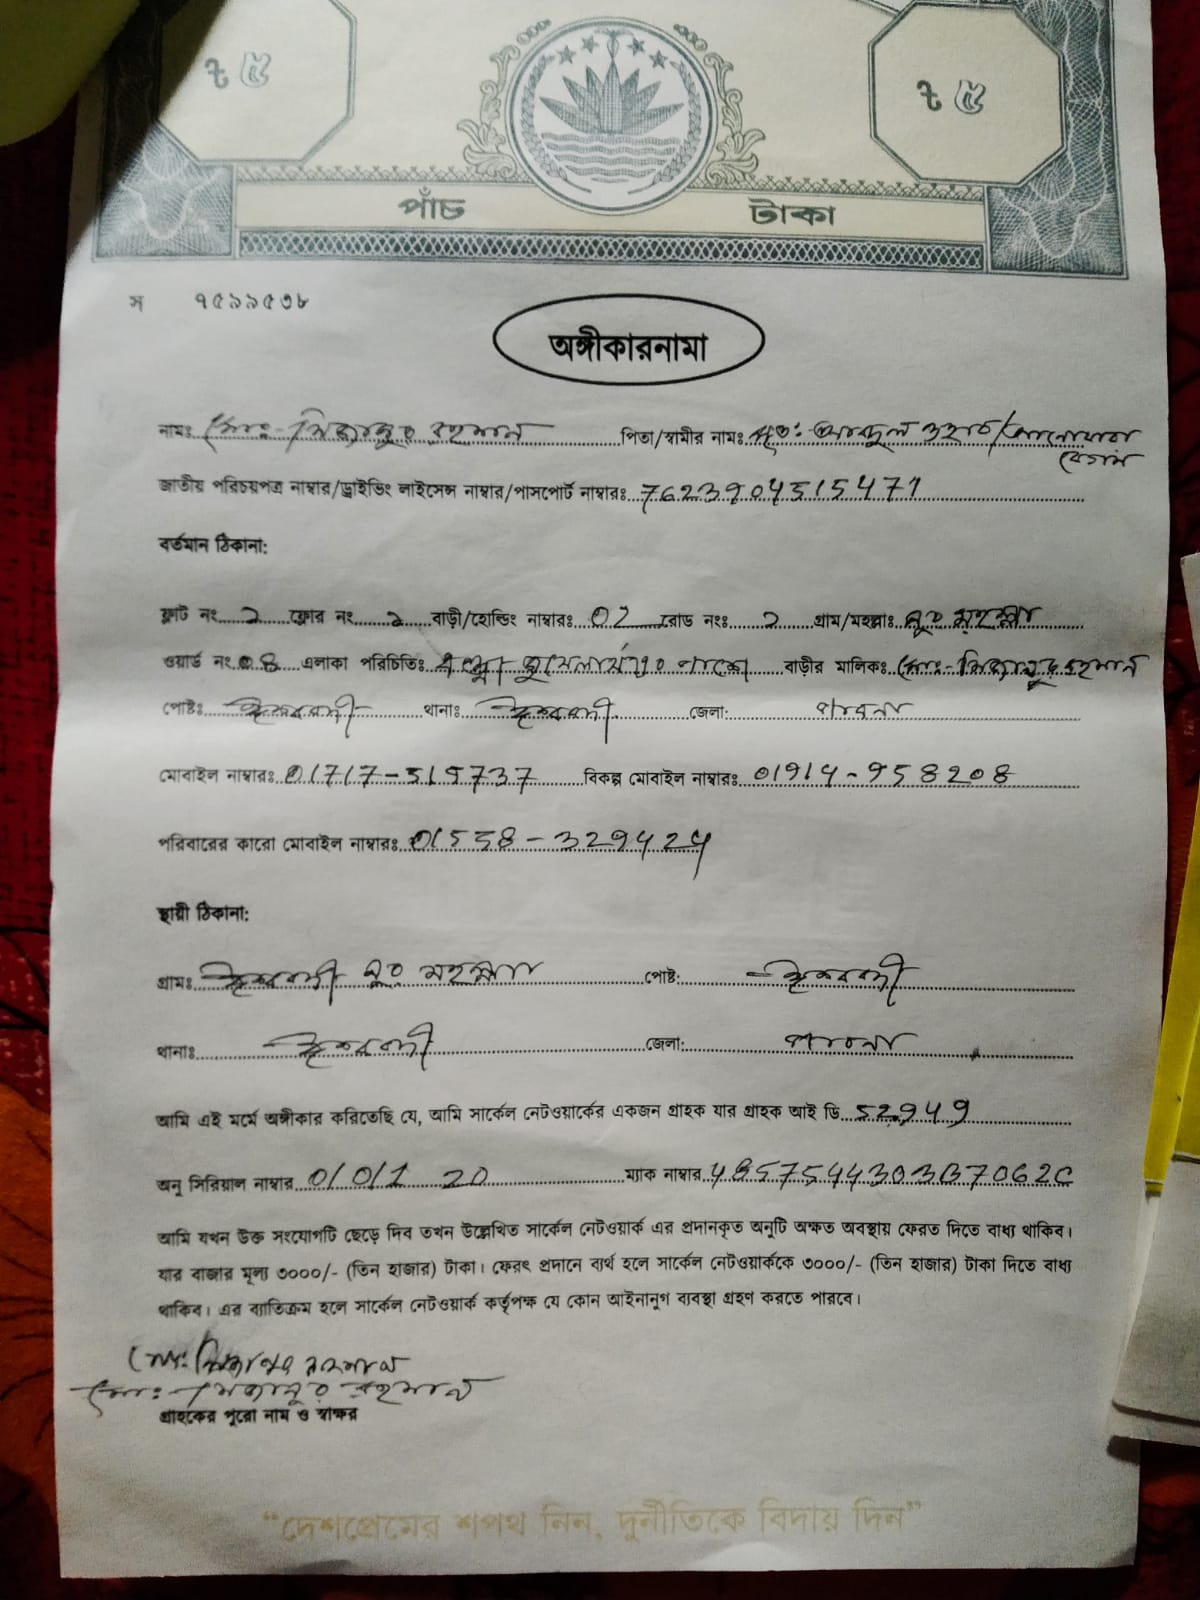 ৳ ৫ ৳ ৫
পাঁচ টাকা
স ৭৫৯৯৫৩৮
অঙ্গীকারনামা
নামঃ মোঃ- মিজানুর রহমান পিতা/স্বামীর নামঃ মৃতঃ আব্দুল ওহাব/আনোয়ারা
বেগম
জাতীয় পরিচয়পত্র নাম্বার/ড্রাইভিং লাইসেন্স নাম্বার/পাসপোর্ট নাম্বারঃ 7623904515471
বর্তমান ঠিকানা:
ফ্লাট নং ফ্লোর নং বাড়ী/হোল্ডিং নাম্বারঃ 02 রোড নংঃ গ্রাম/মহল্লাঃ নূর মহল্লা
ওয়ার্ড নং 08 এলাকা পরিচিতিঃ বাড়ীর মালিকঃ মোঃ- মিজানুর রহমান
পোষ্টঃ ঈশ্বরদী থানাঃ ঈশ্বরদী জেলা: পাবনা
মোবাইল নাম্বারঃ 01717-515737 বিকল্প মোবাইল নাম্বারঃ 01914-958208
পরিবারের কারো মোবাইল নাম্বারঃ 01558-329424
স্থায়ী ঠিকানা:
গ্রামঃ ঈশ্বরদী নূর মহল্লা পোষ্ট: ঈশ্বরদী
থানাঃ ঈশ্বরদী জেলা: পাবনা
আমি এই মর্মে অঙ্গীকার করিতেছি যে, আমি সার্কেল নেটওয়ার্কের একজন গ্রাহক যার গ্রাহক আই ডি 52949
অনু সিরিয়াল নাম্বার 0/0/1 20 ম্যাক নাম্বার 4857544303B7062C
আমি যখন উক্ত সংযোগটি ছেড়ে দিব তখন উল্লেখিত সার্কেল নেটওয়ার্ক এর প্রদানকৃত অনুটি অক্ষত অবস্থায় ফেরত দিতে বাধ্য থাকিব।
যার বাজার মূল্য ৩০০০/- (তিন হাজার) টাকা। ফেরৎ প্রদানে ব্যর্থ হলে সার্কেল নেটওয়ার্ককে ৩০০০/- (তিন হাজার) টাকা দিতে বাধ্য
থাকিব। এর ব্যতিক্রম হলে সার্কেল নেটওয়ার্ক কর্তৃপক্ষ যে কোন আইনানুগ ব্যবস্থা গ্রহণ করতে পারবে।
মোঃ মিজানুর রহমান
মোঃ- মিজানুর রহমান
গ্রাহকের পুরো নাম ও স্বাক্ষর
“দেশপ্রেমের শপথ নিন, দুর্নীতিকে বিদায় দিন”